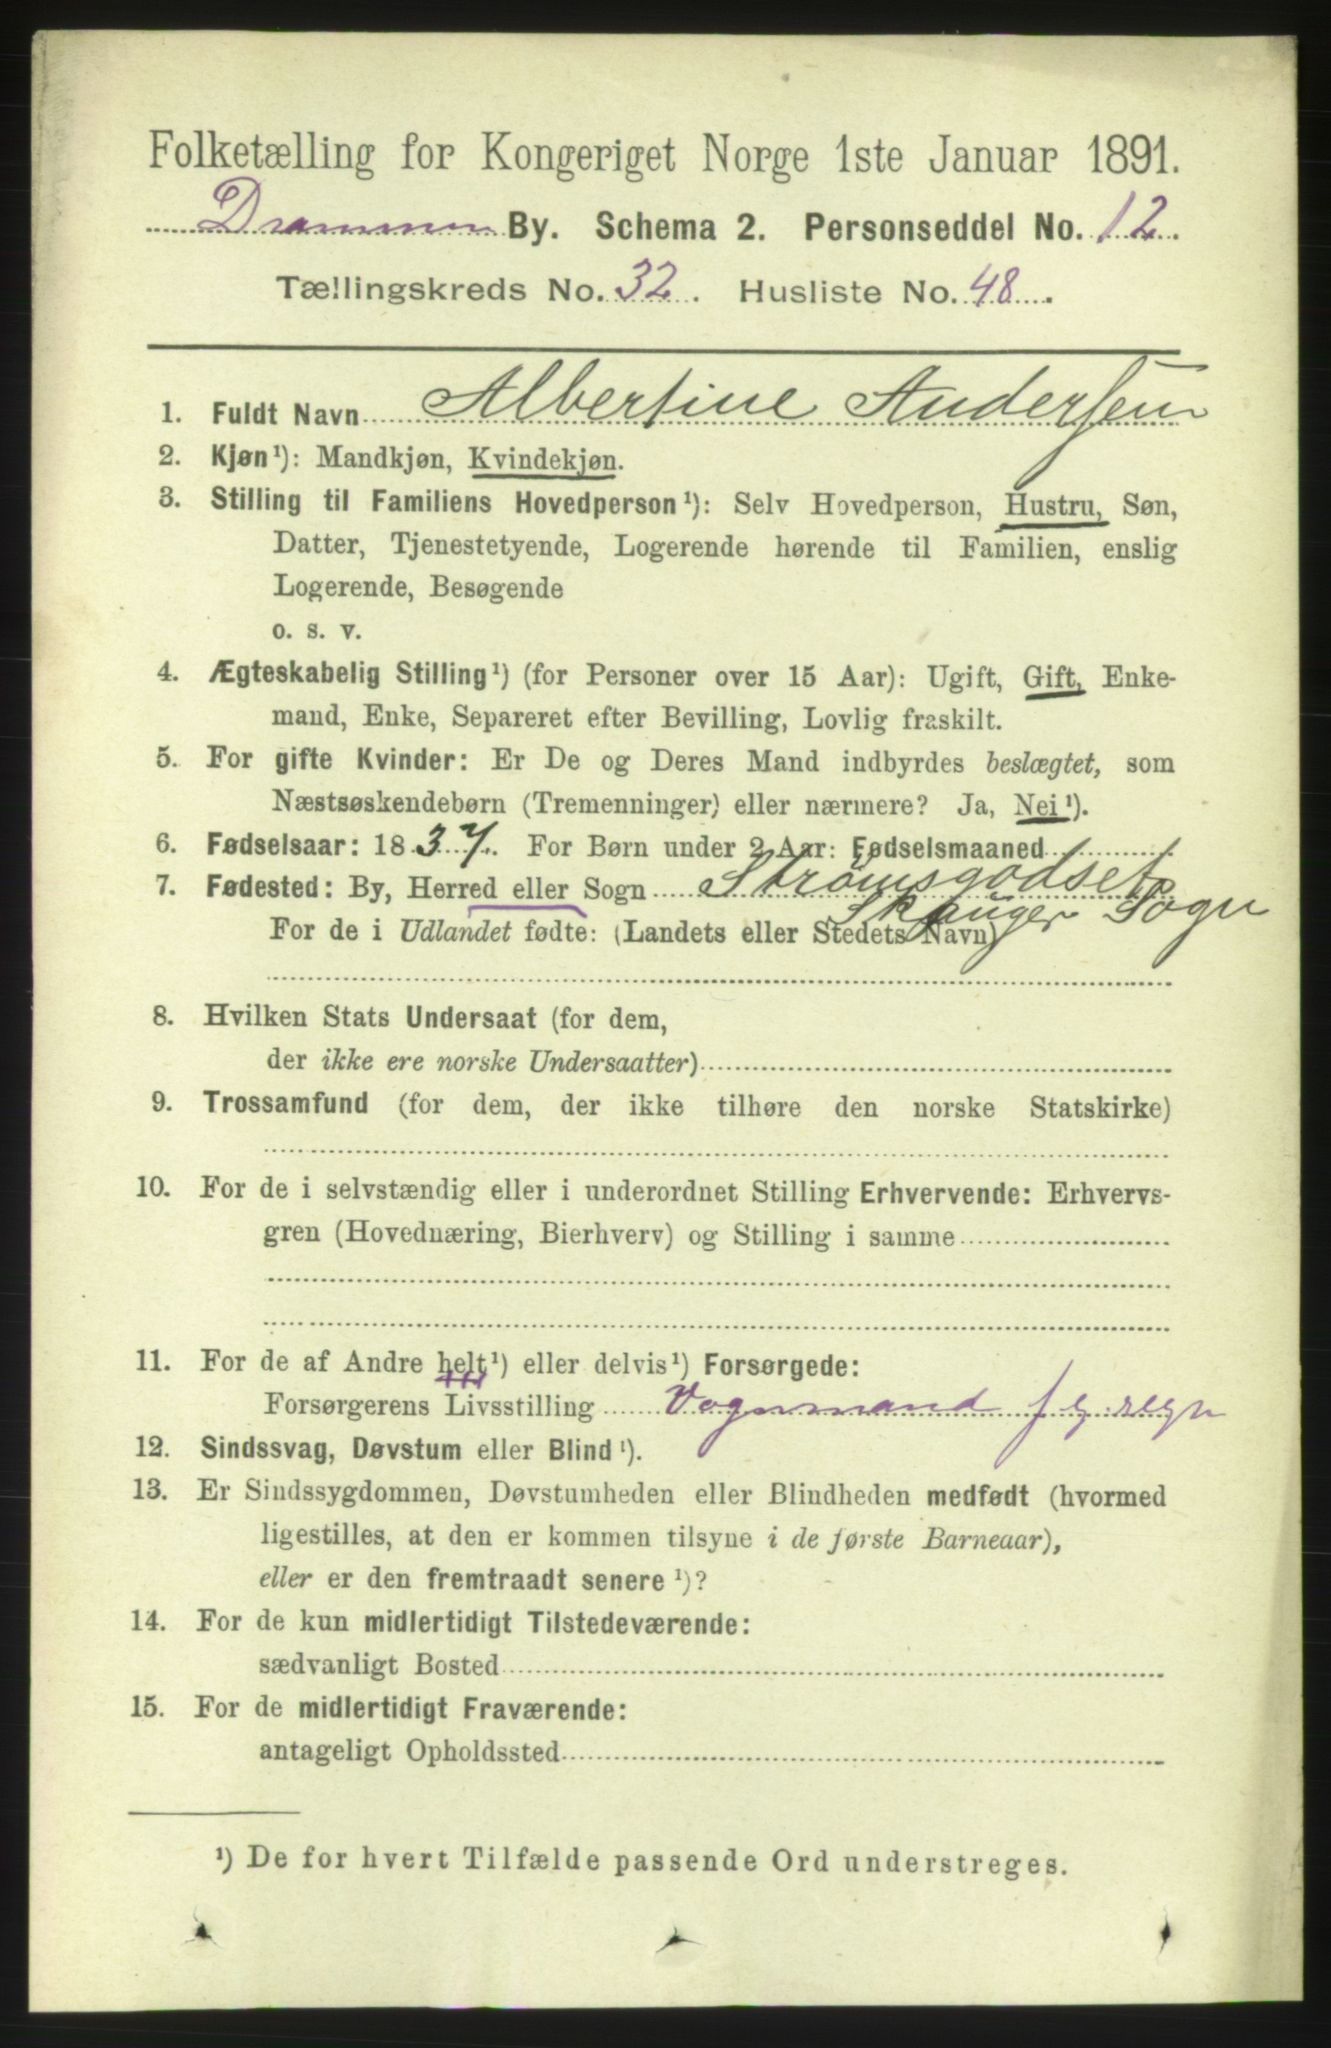 Folketælling for Kongeriget Norge 1ste Januar 1891.
Drammen By. Schema 2. Personseddel No. 12.
Tællingskreds No. 32. Husliste No. 48.
1. Fuldt Navn Albertine Andersen
2. Kjøn¹): Mandkjøn, Kvindekjøn.
3. Stilling til Familiens Hovedperson¹): Selv Hovedperson, Hustru, Søn,
Datter, Tjenestetyende, Logerende hørende til Familien, enslig
Logerende, Besøgende
o. s. v.
4. Ægteskabelig Stilling¹) (for Personer over 15 Aar): Ugift, Gift, Enke-
mand, Enke, Separeret efter Bevilling, Lovlig fraskilt.
5. For gifte Kvinder: Er De og Deres Mand indbyrdes beslægtet, som
Næstsøskendebørn (Tremenninger) eller nærmere? Ja, Nei¹).
6. Fødselsaar: 1837. For Børn under 2 Aar: Fødselsmaaned
7. Fødested: By, Herred eller Sogn Strømsgodset
Skouger Sogn
For de i Udlandet fødte: (Landets eller Stedets Navn)
8. Hvilken Stats Undersaat (for dem,
der ikke ere norske Undersaatter)
9. Trossamfund (for dem, der ikke tilhøre den norske Statskirke)
10. For de i selvstændig eller i underordnet Stilling Erhvervende: Erhvervs-
gren (Hovednæring, Bierhverv) og Stilling i samme
11. For de af Andre helt¹) eller delvis¹) Forsørgede:
Forsørgerens Livsstilling Vognmand f. eg. regn
12. Sindssvag, Døvstum eller Blind¹).
13. Er Sindssygdommen, Døvstumheden eller Blindheden medfødt (hvormed
ligestilles, at den er kommen tilsyne i de første Barneaar),
eller er den fremtraadt senere¹)?
14. For de kun midlertidigt Tilstedeværende:
sædvanligt Bosted
15. For de midlertidigt Fraværende:
antageligt Opholdssted
¹) De for hvert Tilfælde passende Ord understreges.